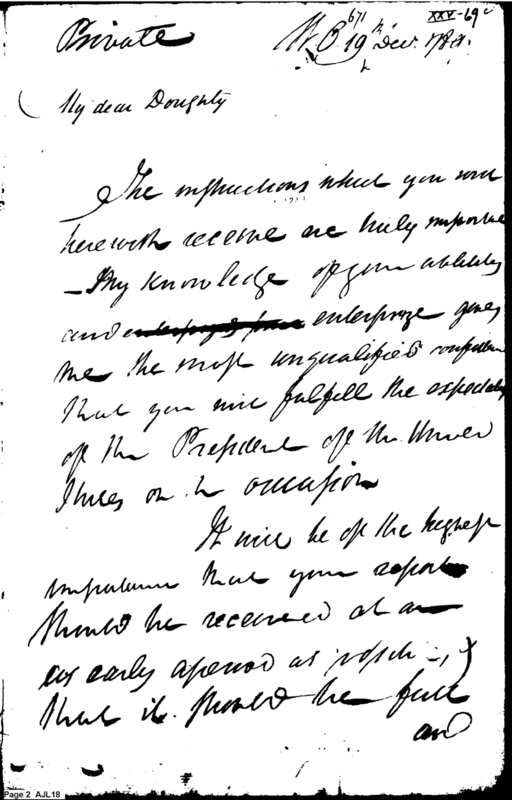 671
XXV-69
Private
W.O. 19th Dec. 1789.
My dear Doughty
The instructions which you will
herewith receive are truly important
– My knowledge of your abilities
and enterprize gives
me the most unqualified confidence
that you will fulfill the expectations
of the President of the United
States on the occasion
It will be of the highest
importance that your report
should be received at an
as early a period as possible,
that it should be full
and
Page 2 AJL18